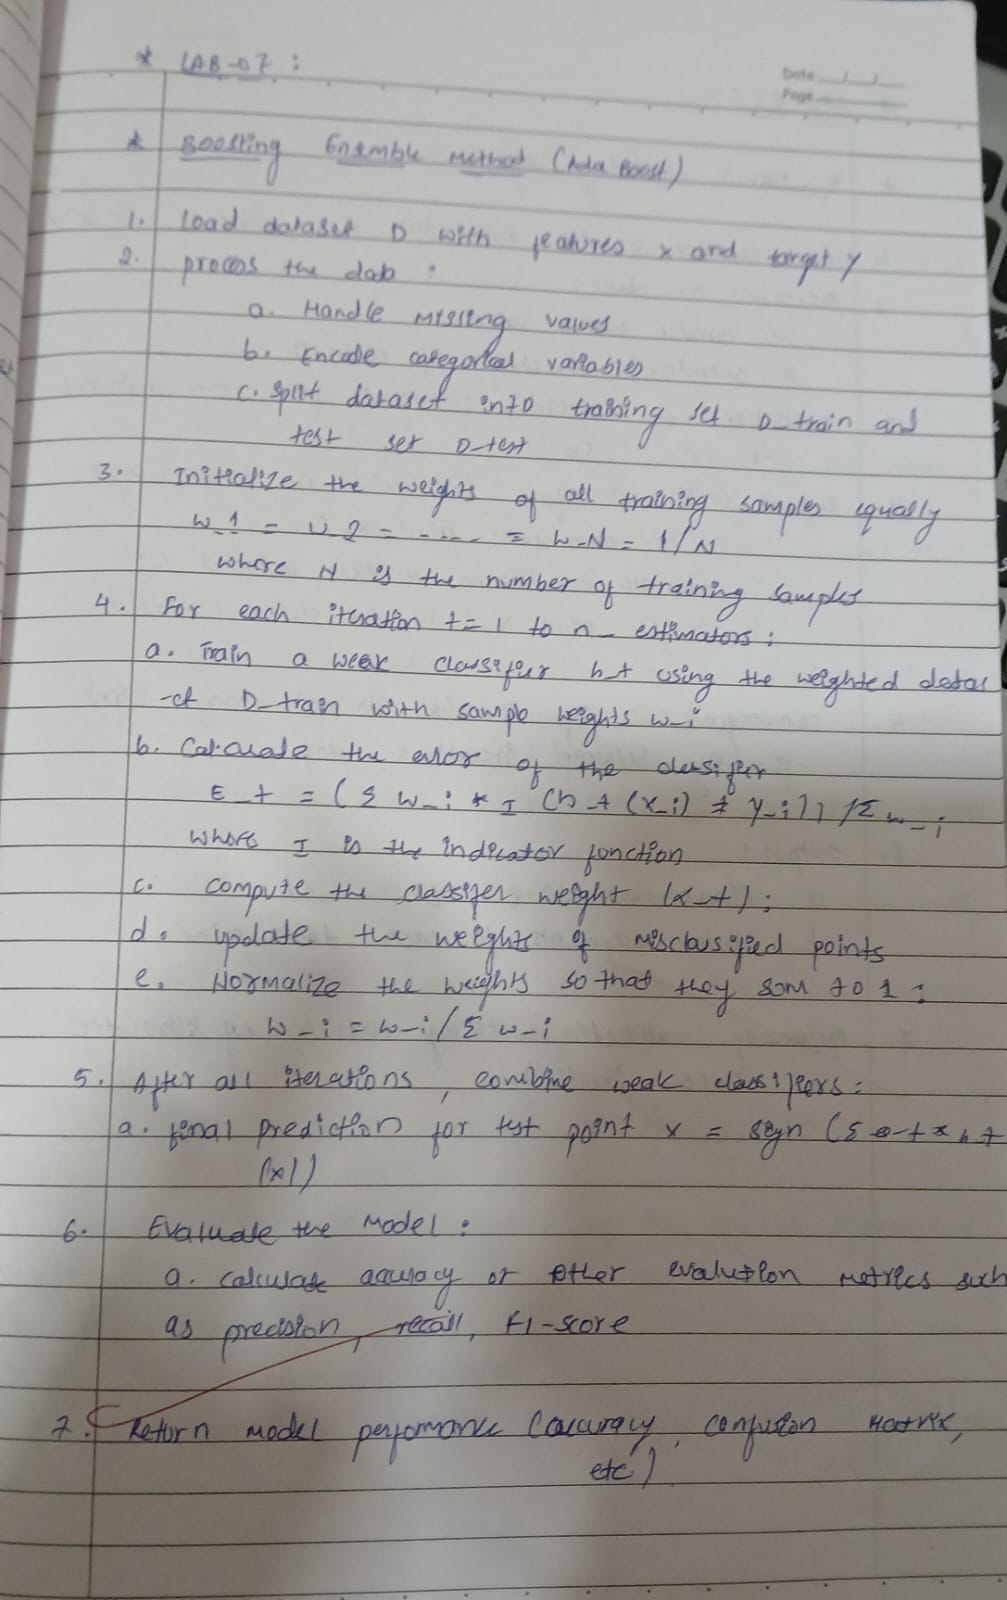 * LAB-07 :
Date __/__/__
Page
* Boosting Ensemble Method (Ada Boost)
1. Load dataset D with features x and target y
2. process the data :
a. Handle Missing values
b. Encode categorical variables
c. split dataset into training set D_train and
test set D_test
3. Initialize the weights of all training samples equally
w_1 = w_2 = ..... = w_N = 1/N
where N is the number of training samples
4. For each iteration t=1 to n_estimators :
a. Train a weak classifier h_t using the weighted datas
-et D_train with sample weights w_i
b. Calculate the error of the classifier
E_t = (Σ w_i * I (h_t (x_i) ≠ y_i)) / Σ w_i
where I is the indicator function
c. compute the classifer weight (α_t) :
d. update the weights of misclassified points
e. Normalize the weights so that they sum to 1 :
w_i = w_i / Σ w_i
5. After all iterations, combine weak classifiers :
a. final prediction for test point x = sign (Σ α_t * h_t
(x))
6. Evaluate the Model :
a. calculate accuracy or other evalution metrics such
as precision, recall, F1-score
7. Return model performance (accuracy, confusion Matrix,
etc)